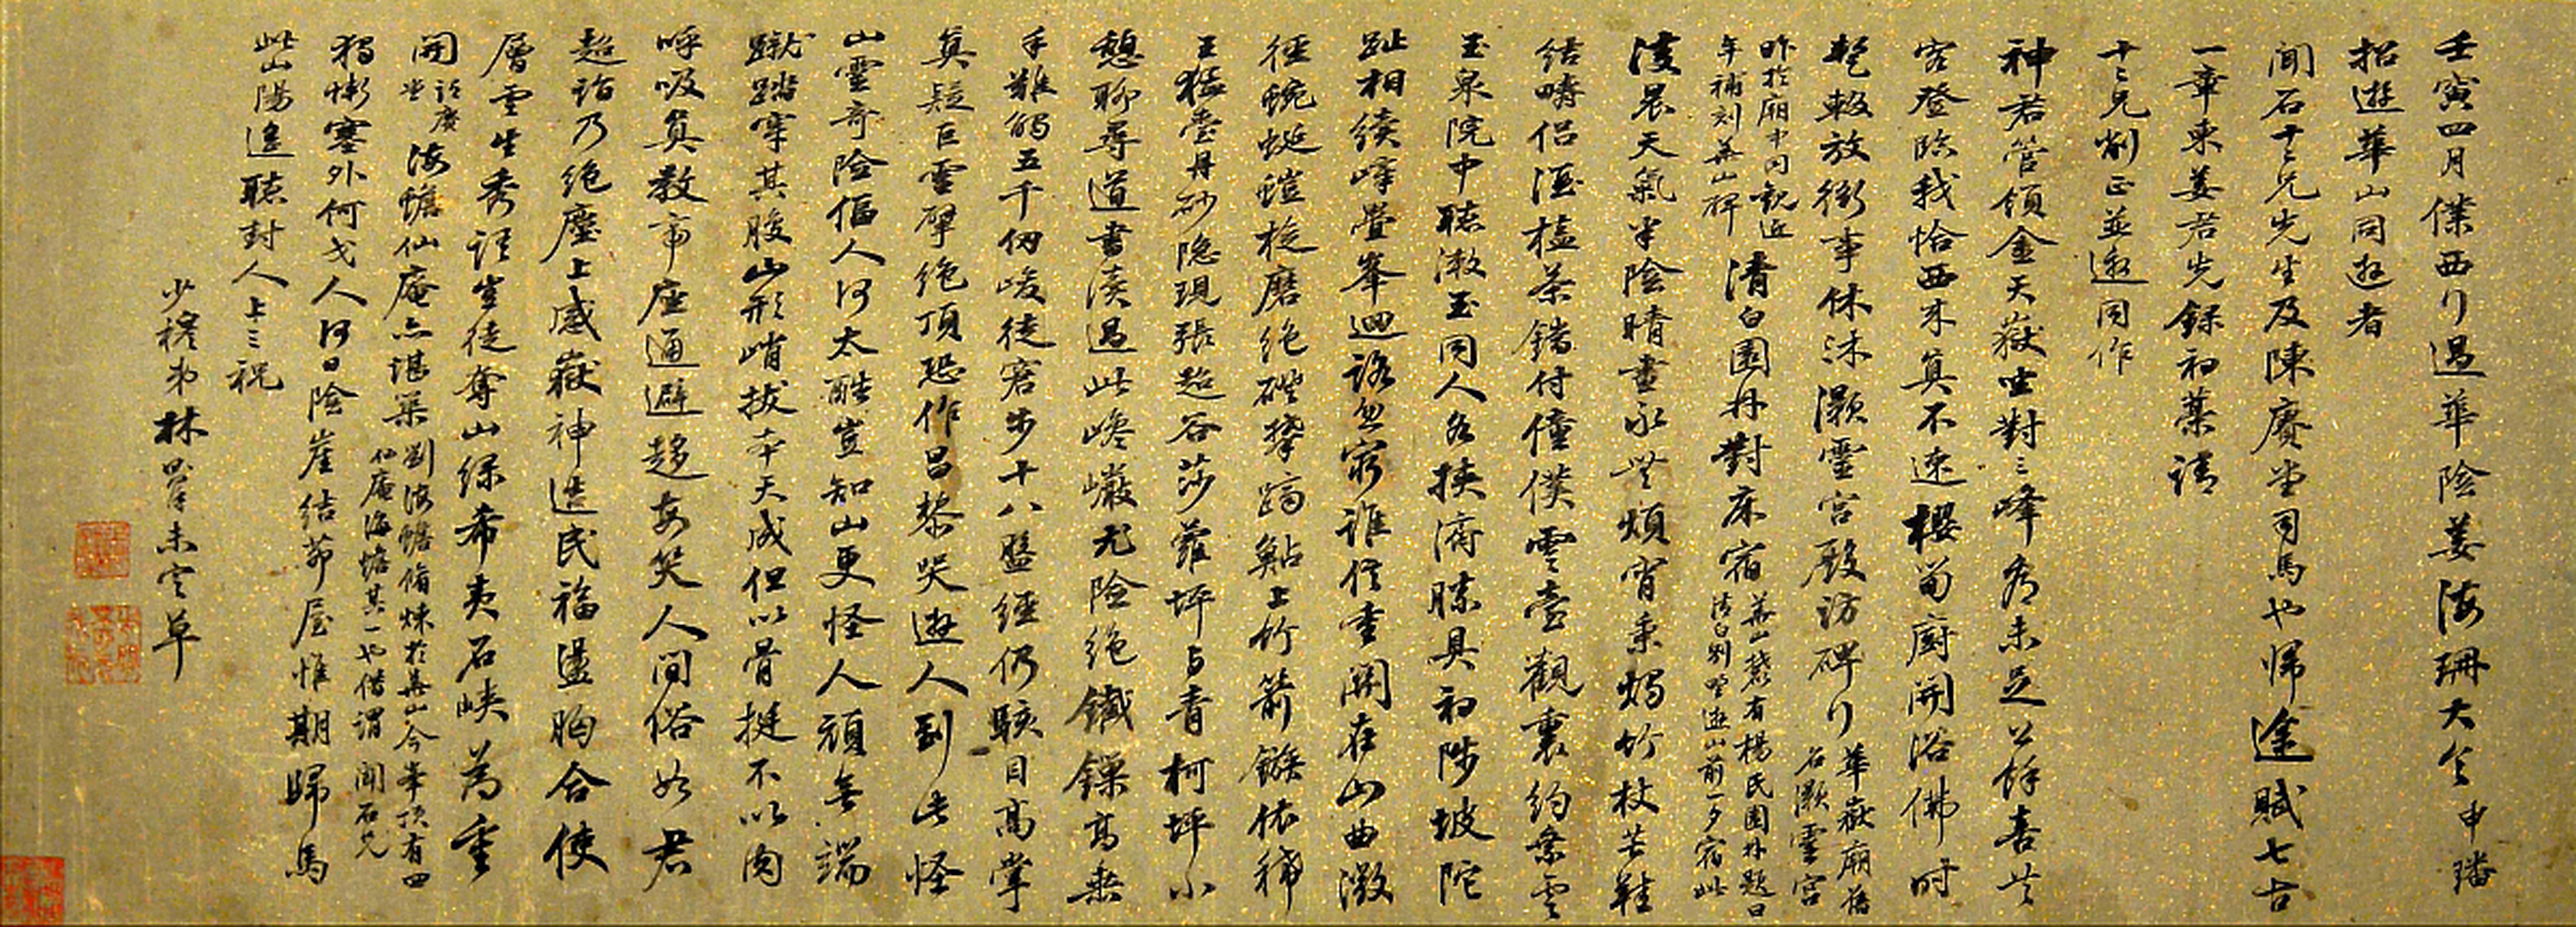 壬寅四月僕西行過華陰姜海珊大令申璠
招遊華山同遊者
聞石十二兄先生及陳賡堂司馬也歸途賦七古
一章柬姜君先錄初藁請
十二兄削正並邀同作
神君管領金天嶽坐對三峰看未足公餘喜共
客登臨我恰西來真不速櫻筍廚開浴佛時
乾放衙事休沐灝靈宮殿訪碑行
華嶽廟舊
名灝靈宮
昨於廟中同觀近
年補刻華山碑
清白園林對床宿
華山麓有楊氏園林題曰
清白別墅遊山前一夕宿此
淩晨天氣半陰晴晝永無煩宵秉燭竹杖芒鞋
結疇侶酒榼茶鐺付僮僕雲臺觀裏約象雲
玉泉院中聽漱玉同人各挾濟勝具初陟坡陀
趾相續峰疊峯迴路忽窮誰信重關在山曲激
徑蜿蜒螘旋磨絕磴攀躋鮎上竹箭鏃依稀
王猛臺丹砂隱現張超谷莎蘿坪與青柯坪小
憩聊尋道書讀過此巉巖尤險絕鐵鏁高垂
手難觸五千仞峻徒窘步十八盤經仍駭目高掌
真疑巨靈擘絕頂恐作昌黎哭遊人到此怪
山靈奇險偪人何太酷豈知山更怪人頑無端
蹴踏穿其腹山形峭拔本天成但以骨挺不以肉
呼吸真教帝座通避趨每笑人間俗如君
超詣乃絕塵上感嶽神造民福盪胸合使
層雲生秀語豈徒奪山綠希夷石峽為重
開
詔賡
堂
海蟾仙庵亦堪築
劉海蟾脩煉於華山今峯頂有四
仙庵海蟾其一也借謂聞石兄
獨慚塞外何戈人何日陰崖結茆屋惟期歸馬
此山陽遙聽封人上三祝
少穆弟林則徐未定草